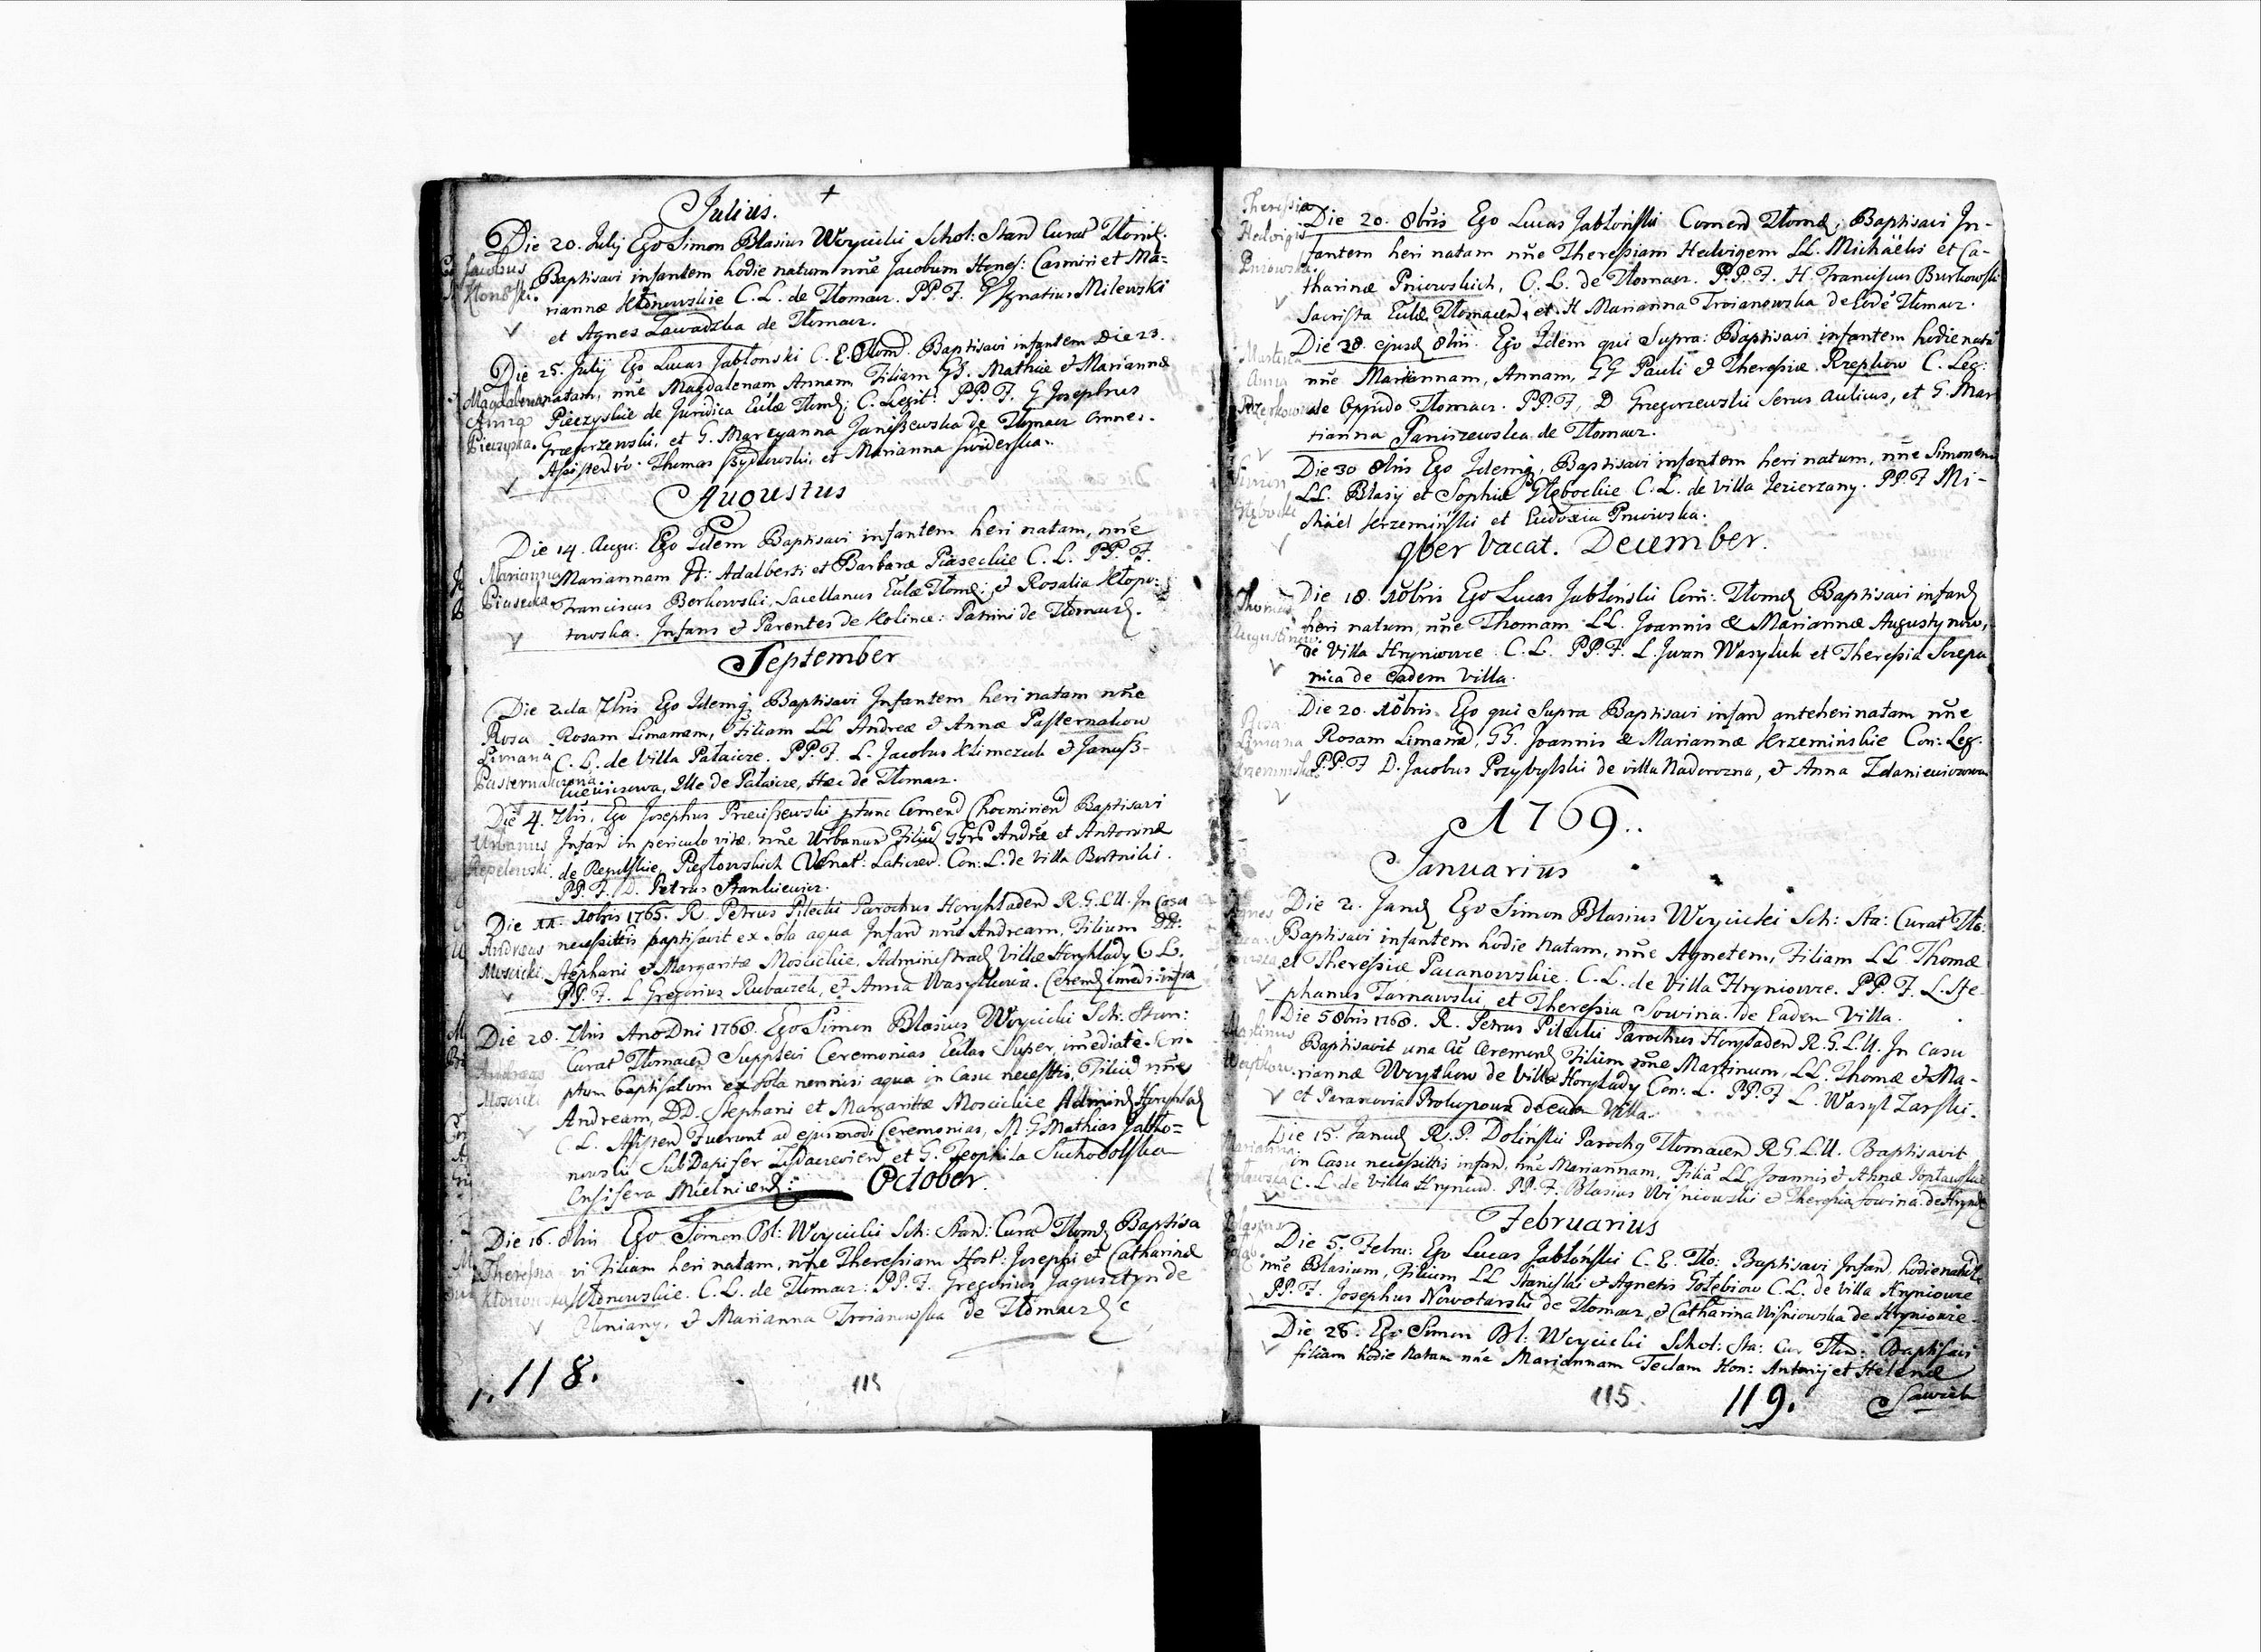 Julius. +
Die 20. Julij Ego Simon Blasius Woycicki Schol: Stan Curat Tłom:
Jacobus Baptisavi infantem hodie natum nne Jacobum Hones: Casmiri et Ma=
riannæ Kłonowskie C. L. de Tłomacz. PP. F. G Ignatius Milewski
et Agnes Zawadzka de Tłomacz.
Die 25. Julij Ego Lucas Jabłonski C. E. Tłom. Baptisavi infantem Die 23.
Magdalena natam, nne Magdalenam Annam, Filiam GG. Mathiæ & Mariannæ
Anna Pieczyskie de Juridica Eulæ Tłom: C. Legit: PP. F. G Josephus
Pieczyska. Grzegorzewski, et G. Marcyanna Janiszewska de Tłomacz omnes.
Thomas Bydłowski, et Marianna Swiderska.
Augustus
Die 14. Augu: Ego Idem Baptisavi infantem heri natam, nne
Marianna Mariannam H: Adalberti et Barbaræ Piaseckie C. L. PP. F.
Piasecka Franciscus Berkowski, Sacellanus Eulæ Tłom: & Rosalia Kłopo-
towska. Infans & Parentes de Kolince: Patrini de Tłomacz.
September
Die 2da 7bris Ego Idemq Baptisavi Infantem heri natam nne
Rosa Rosam Limanam, Filiam LL Andreæ & Annæ Pasternakow
Limana C. L. de Villa Pałaicze. PP. F. L. Jacobus Klimczuk & Janusz-
kiewiczowa, Ille de Pałaicze, Hæc de Tłomacz.
Die 4. 7bris. Ego Josephus Przeciszewski ptunc Comend Chocimirien Baptisavi
Urbanus Infan in periculo vitæ, nne Urbanum Filium Andreæ et Antoninæ
de Repelskie, Laticzev. Con: L. de Villa Bortniki.
PP. F. D. Petrus Stankiewicz.
Die 11. Xobris 1765. R. Petrus Pilecki Parochus Horyhladen R. G. L. U. In Casu
Andreas necessitis baptisavit ex Sola aqua Infan nne Andream, Filium DD:
Moscicki Stephani & Margaritæ Moscickie, Administrad Villæ Horyhlady C L.
PP. F. L Gregorius Rubaczek, & Anna Wasylkowa. Cerem imed: infra
Die 28. 7bris Ano Dni 1768. Ego Simon Blasius Woycicki Sch: Stan:
Curat Tłomacen Supplevi Ceremonias Eulas Super imediatè Scri-
Andreas ptum baptisatum ex Sola nemnisi aqua in Casu necessitis, Filium nne
Moscicki Andream, DD. Stephani et Margarittæ Moscickie Admin Horyhlad
C. L. Assisten Fuerunt ad ejusmodi Ceremonias, M. G Mathias Jabło=
nowski SubDapifer Zydaczevien et G. Teophila Suchodolska
Ensifera Mielnicen:
October.
Die 16. 8bris Ego Simon Bl: Woycicki Sch: Stan: Curat Tłom Baptisa
Theressia vi Filiam heri natam, nne Theressiam Host: Josephi & Catharinæ
Kłonowskie. C. L. de Tłomacz: PP. F. Gregorius Jagusztyn de
& Marianna Troianowska de Tłomacz
118.
Theressia Die 20. 8bris Ego Lucas Jabłoński Comend Tłom; Baptisavi In-
Hedvigis fantem heri natam nne Theressiam Hedvigem LL. Michaëlis et Ca-
Pniowska. tharinæ Pniowskich, C. L. de Tłomacz. P.P. F. H. Franciscus Burkowski
Sacrista Eulæ Tłomacen, et H Marianna Troianowska de Eode Tłomacz.
Die 28. ejusd 8bris. Ego Idem qui Supra: Baptisavi infantem hodie nata
Anna nne Mariannam, Annam, GG Pauli & Theressiæ Rzepkow C. Leg:
de Oppido Tłomacz. PP. F, D Gregorzewski Serus Aulicus, et G. Mar
tianna Janiszewska de Tłomacz.
Die 30 8bris Ego Idemq, Baptisavi infantem heri natum, nne Simonem
Simon LL. Blasij et Sophiæ Głębockie C. L. de Villa Jezierzany. PP. F Mi-
chäel Krzemiński et Eudoxia Pniowska.
9ber Vacat. December.
Thomas Die 18. Xobris Ego Lucas Jabłoński Com: Tłom Baptisavi infan
heri natum, nne Thomam LL. Joannis & Mariannæ Augustynow,
de Villa Hryniowce. C. L. PP. F. L. Jwan Wasyluk et Theresia Szczepa
nica de eadem Villa.
Die 20. Xobris. Ego qui Supra Baptisavi infan anteheri natam nne
Rosam Limana, GG. Joannis & Mariannæ Krzeminskie Con: Leg.
PP. F D. Jacobus Przybylski de villa Nadorozna, & Anna Zdaniewiczowa
1769.
Januarius
Die 2. Jan Ego Simon Blasius Woycicki Sch: Sta: Curat Tło:
Baptisavi infantem hodie natam, nne Agnetem, Filiam LL Thomæ
et Theressiæ Pacanowskie. C. L. de Villa Hryniowce. PP. F. L. Ste-
phanus Tarnawski, et Theressia Sowina de Eadem Villa.
Die 5 8bris 1768. R. Petrus Pilecki Parochus Horyhladen R. G. L. U. In Casu
Baptisavit una cu Ceremon Filium nne Martinum, LL. Thomæ & Ma-
riannæ Woytkow de Villa Horyhlady Con: L. PP. F L. Wasyl Zarski.
et Parascovia Prokopowa de eadem Villa.
Die 15. Januar R. P. Doliński Paroch9 Tłomacen R. G. L. U. Baptisavit
in Casu necessittis infan, nne Mariannam, Filiã LL Joannis & Annæ
C. L. de Villa Hryniow. PP. F. Blasius Wisniowski & Theresia Sowina de
Februarius
Die 5. Febru: Ego Lucas Jabłoński C. E. Tło: Baptisavi Infan, hodie natum
nne Blasium, Filium LL Stanislai & Agnetis Gołębiow C. L. de Villa Hryniowce
PP. F. Josephus Nowotarski de Tłomacz, & Catharina Wisniowska de Hryniowce
Die 28. Ego Simon Bl: Woycicki Schol: Sta: Cur Tło: Baptisavi
filiam hodie natam nne Mariannam Teclam Hon: Antonij et Helenæ
115. 119.